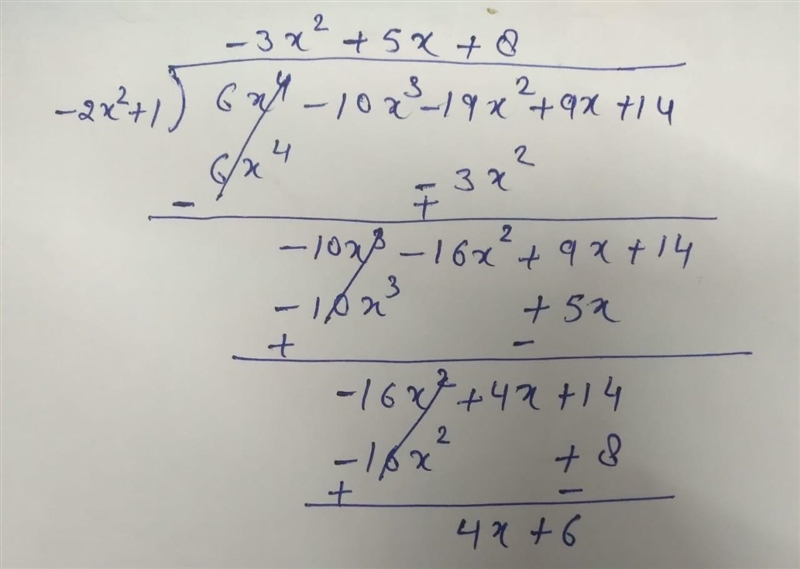 -3x² + 5x + 8
-2x²+1 ) 6x⁴ -10x³ -19x² + 9x + 14
6x⁴ - 3x²
- +
-10x³ - 16x² + 9x + 14
-10x³ + 5x
+ -
-16x² + 4x + 14
-16x² + 8
+ -
4x + 6